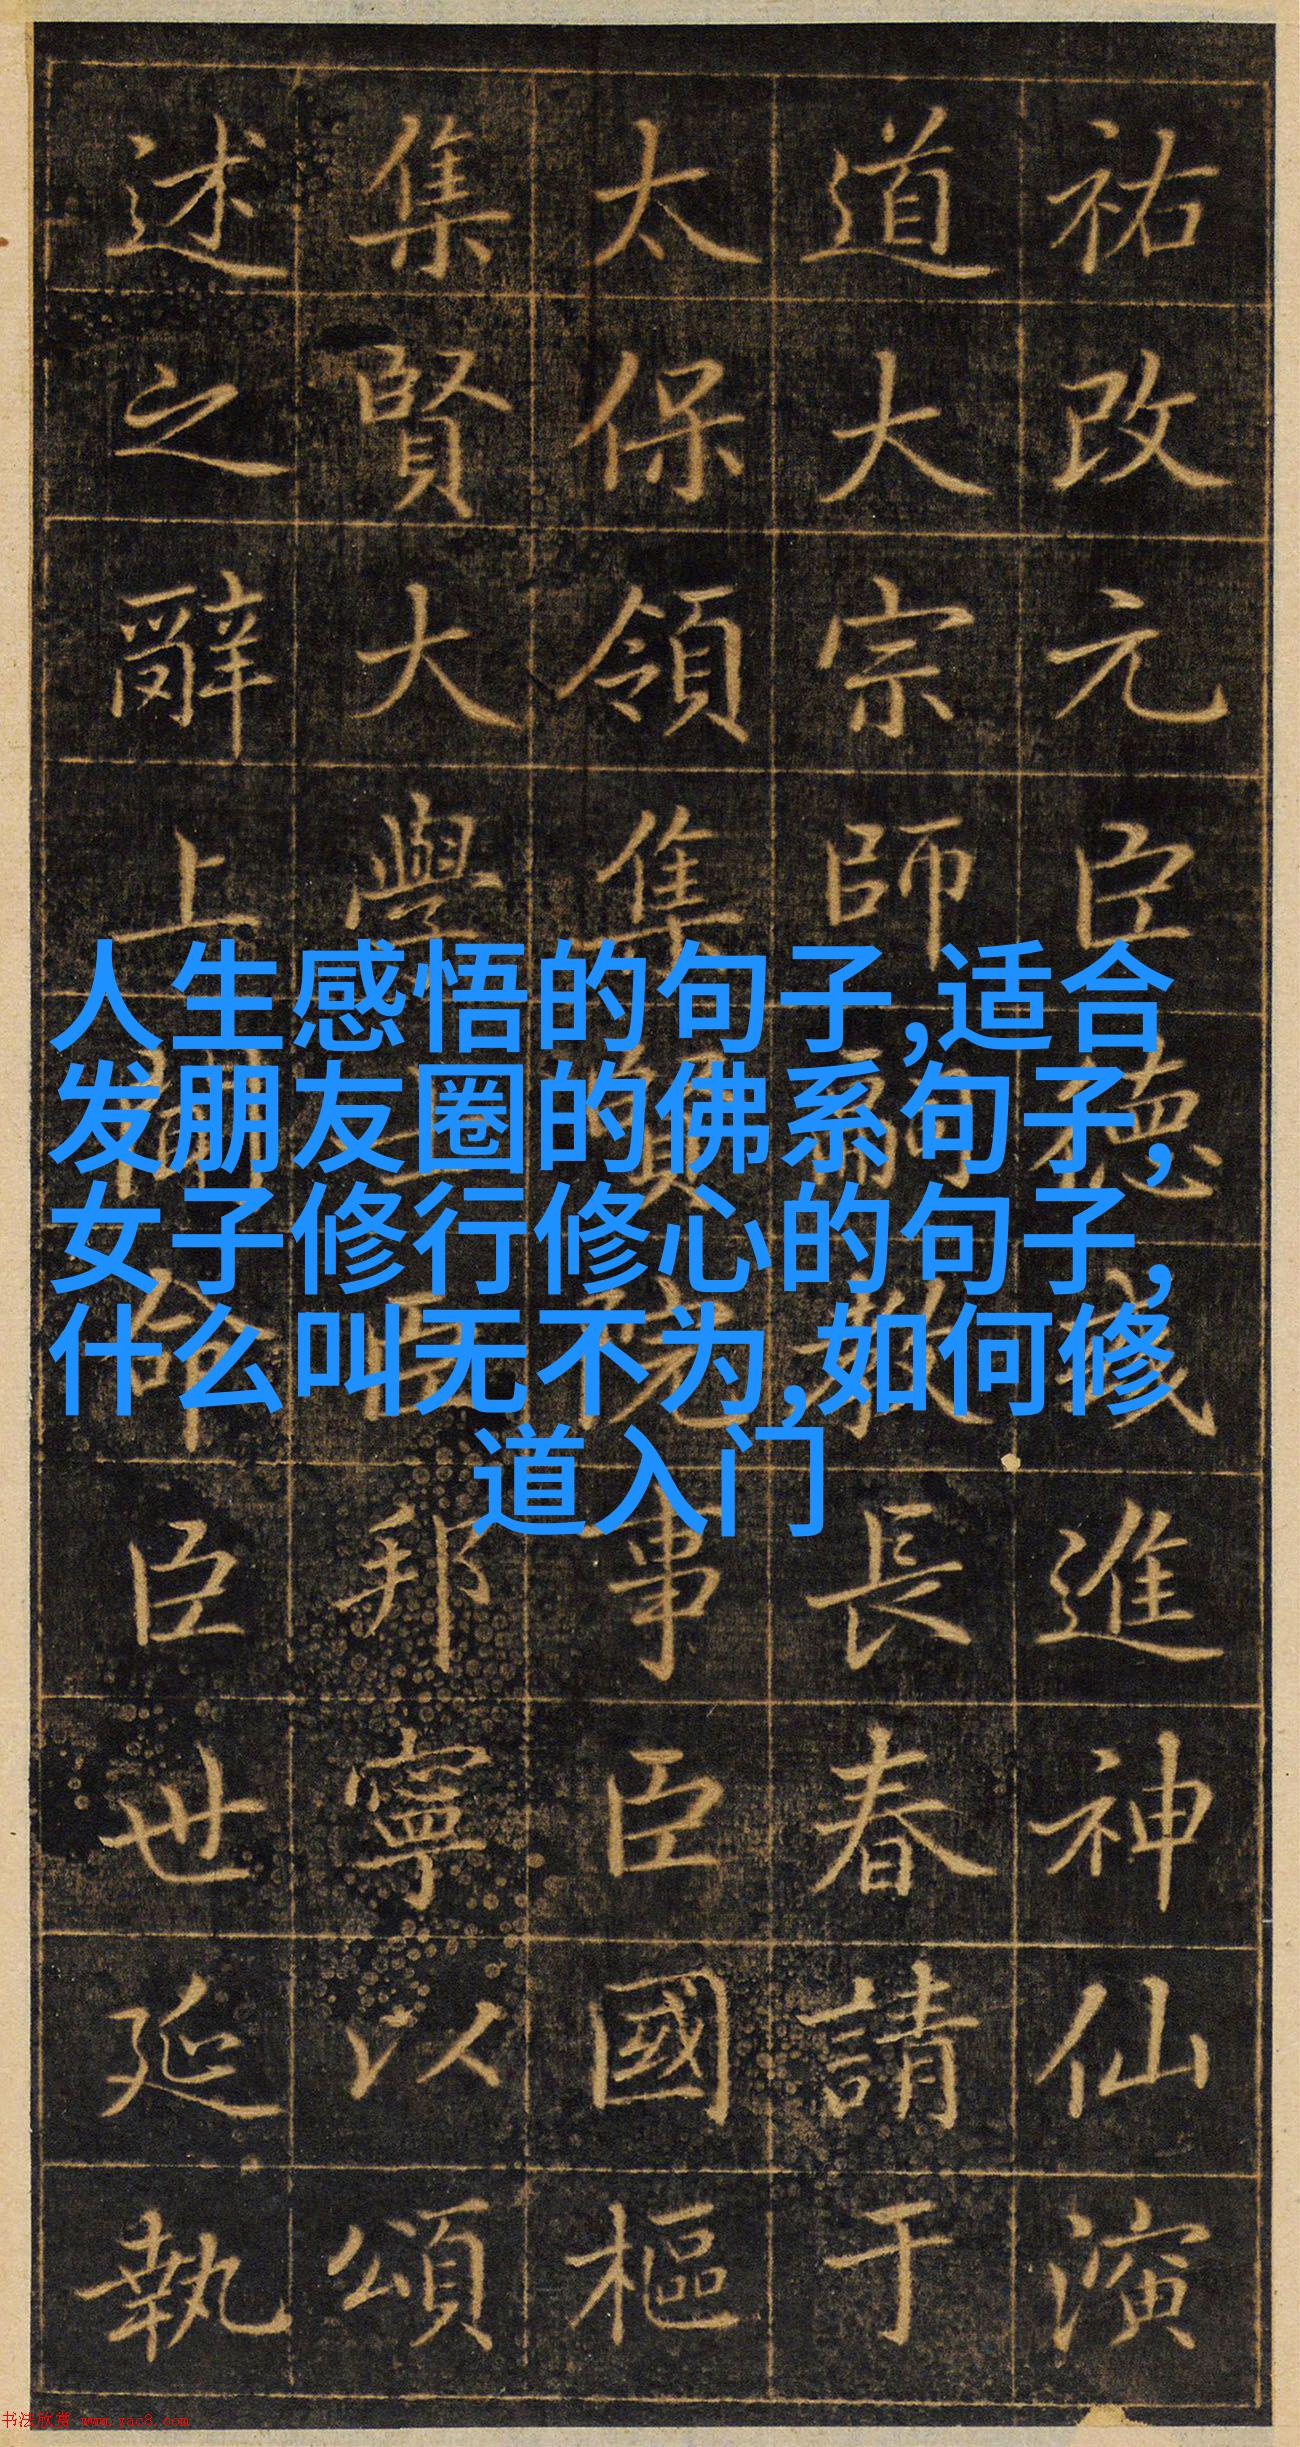 祐改元臣德彧進神仙演
道大宗師嗣教長春請于
太保領集賢院事臣國樞
集賢大學士臣邦寧以頌
述之辭上聞命臣世延執
人生感悟的句子,适合
发朋友圈的佛系句子,
女子修行修心的句子,
什么叫无不为,如何修
道入门
书法欣赏 www.yac8.com